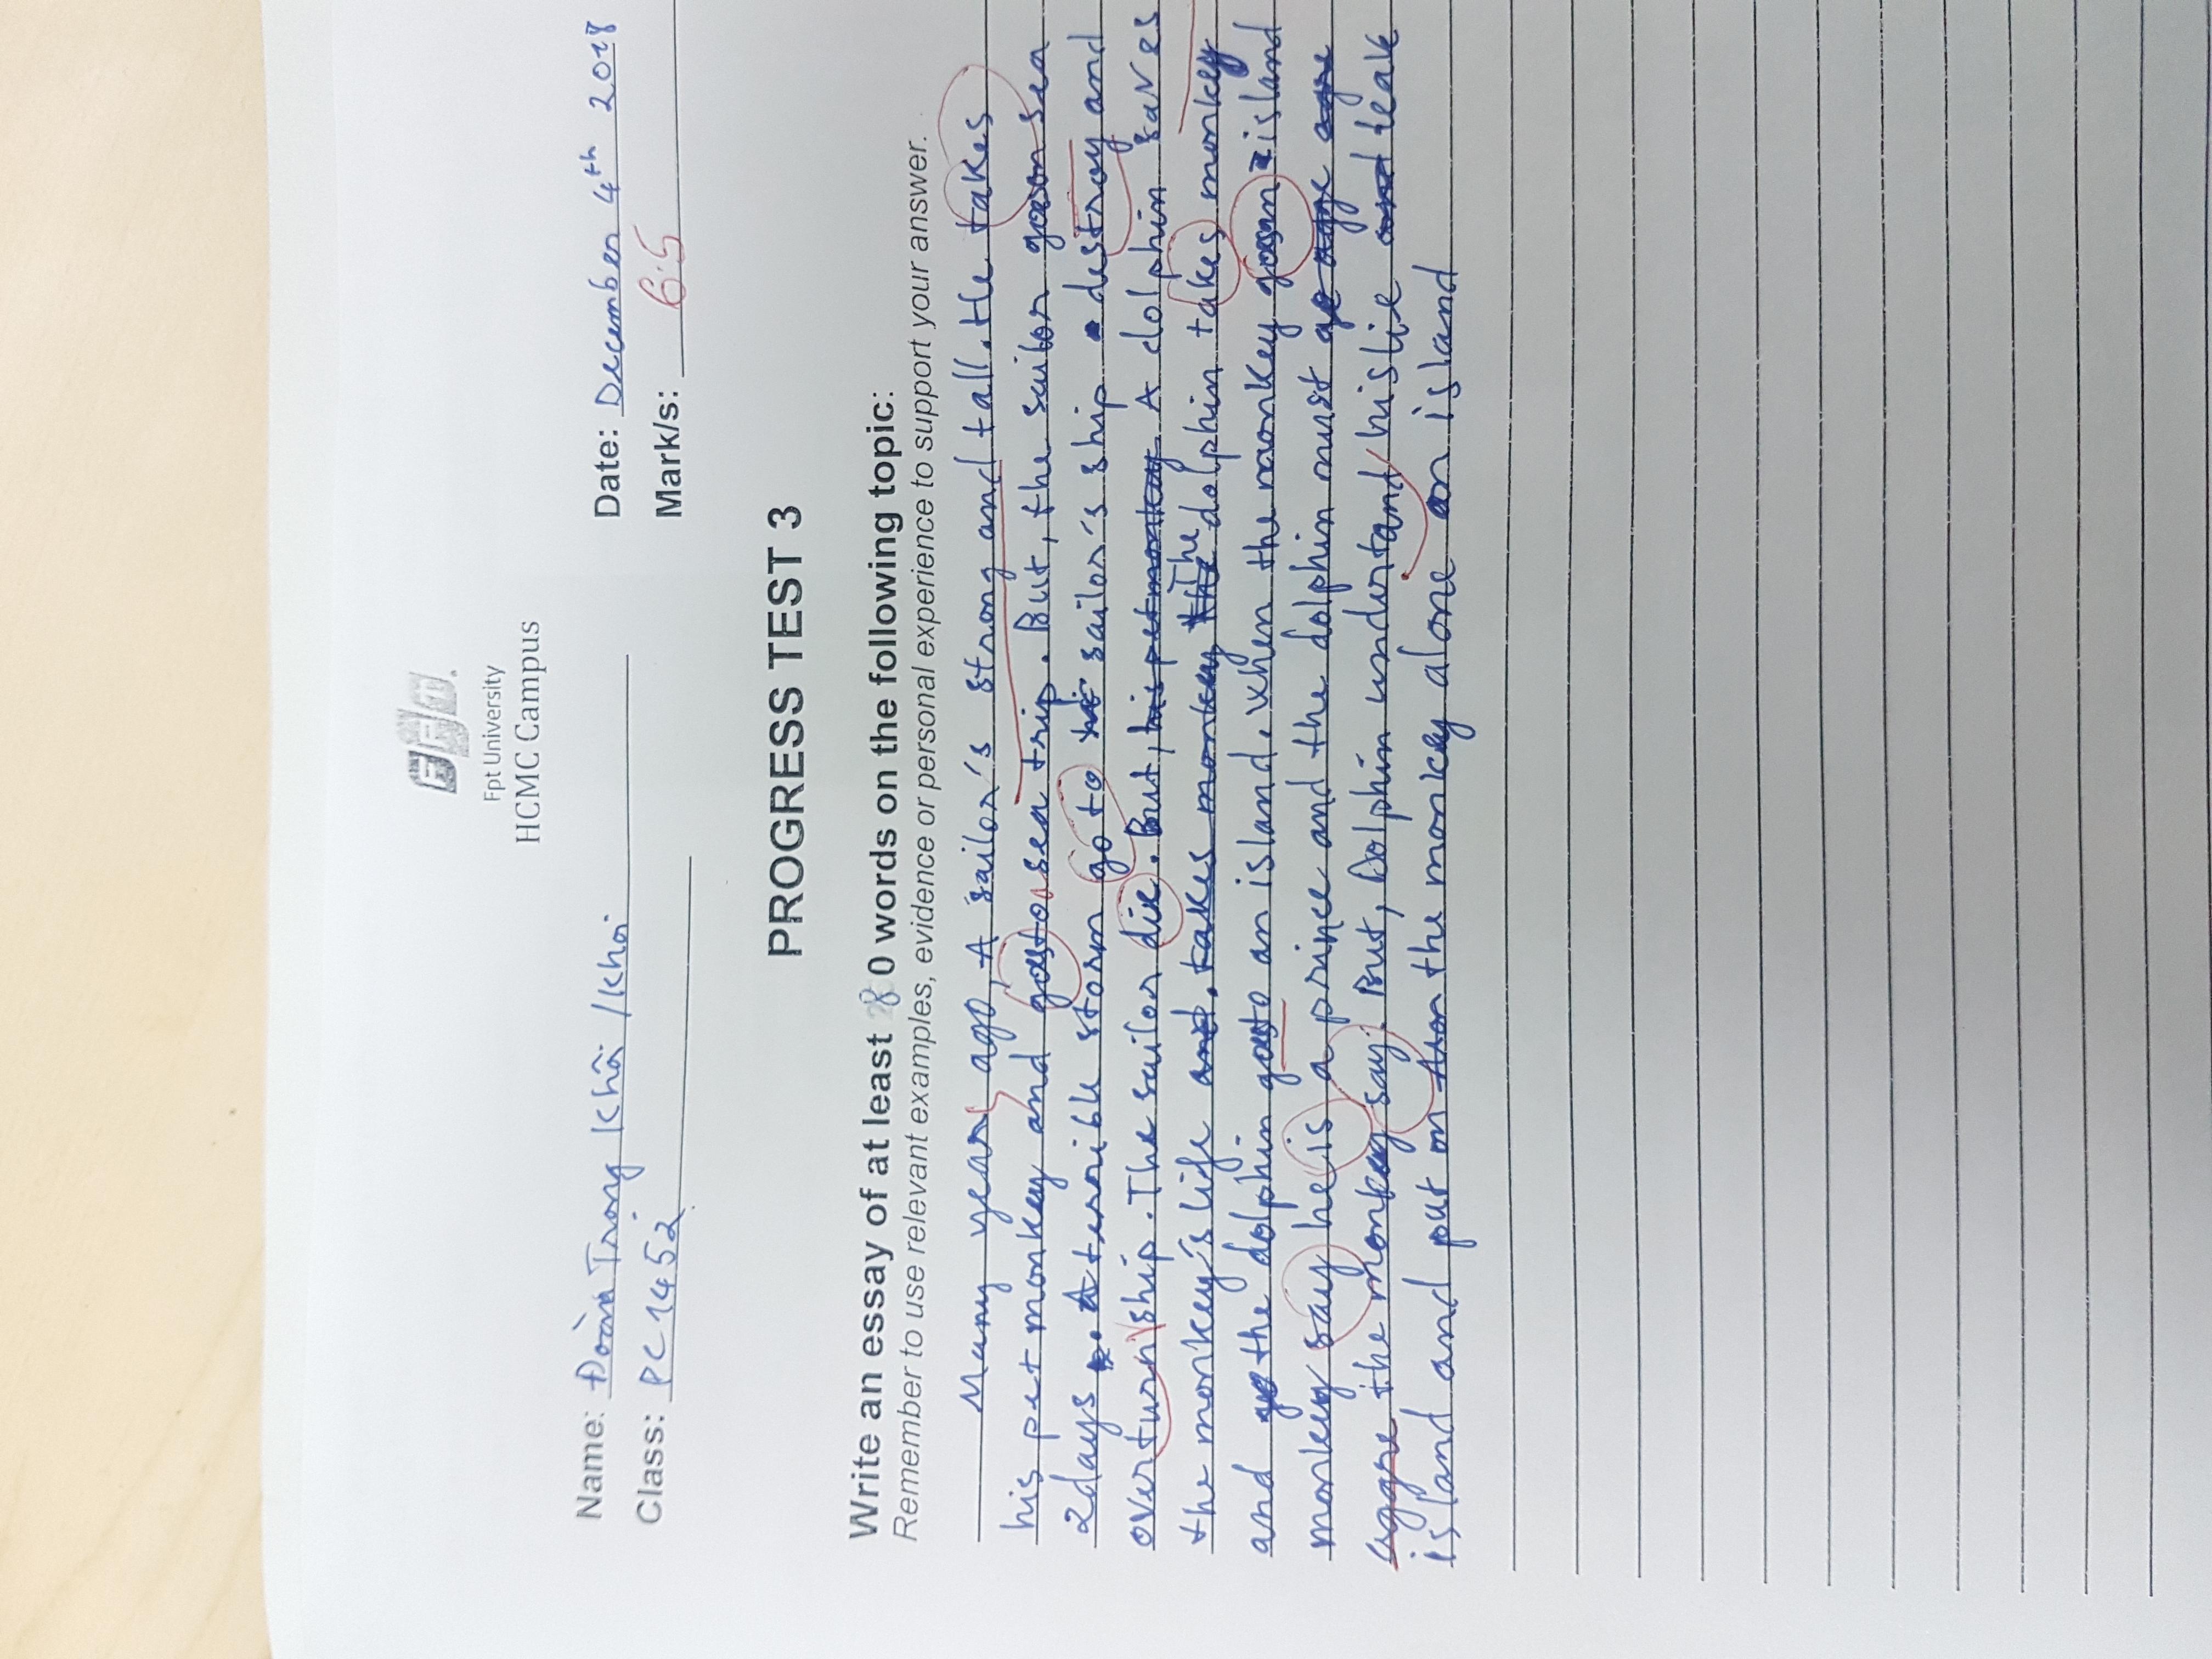 FPT
Fpt University
HCMC Campus
Name: Đoàn Trọng Khôi /Khoi
Date: December 4th 2018
Class: PC1452
Mark/s: 6.5
PROGRESS TEST 3
Write an essay of at least 80 words on the following topic:
Remember to use relevant examples, evidence or personal experience to support your answer.
Many year ago, A sailor's strong and tall. He takes
his pet monkey and goes to a sea trip. But, the sailor goes on sea
2days. A terrible storm go to sailor's ship destroy and
overturn ship. The sailor die. But, his pet monkey A dolphin saves
the monkey's life and. takes monkey The dolphin takes monkey
and the dolphin goes to an island. When the monkey goes on island
monkey say he is a prince and the dolphin must
aggre the monkey say. But, Dolphin understand his lie and leave
island and put on the monkey alone on island